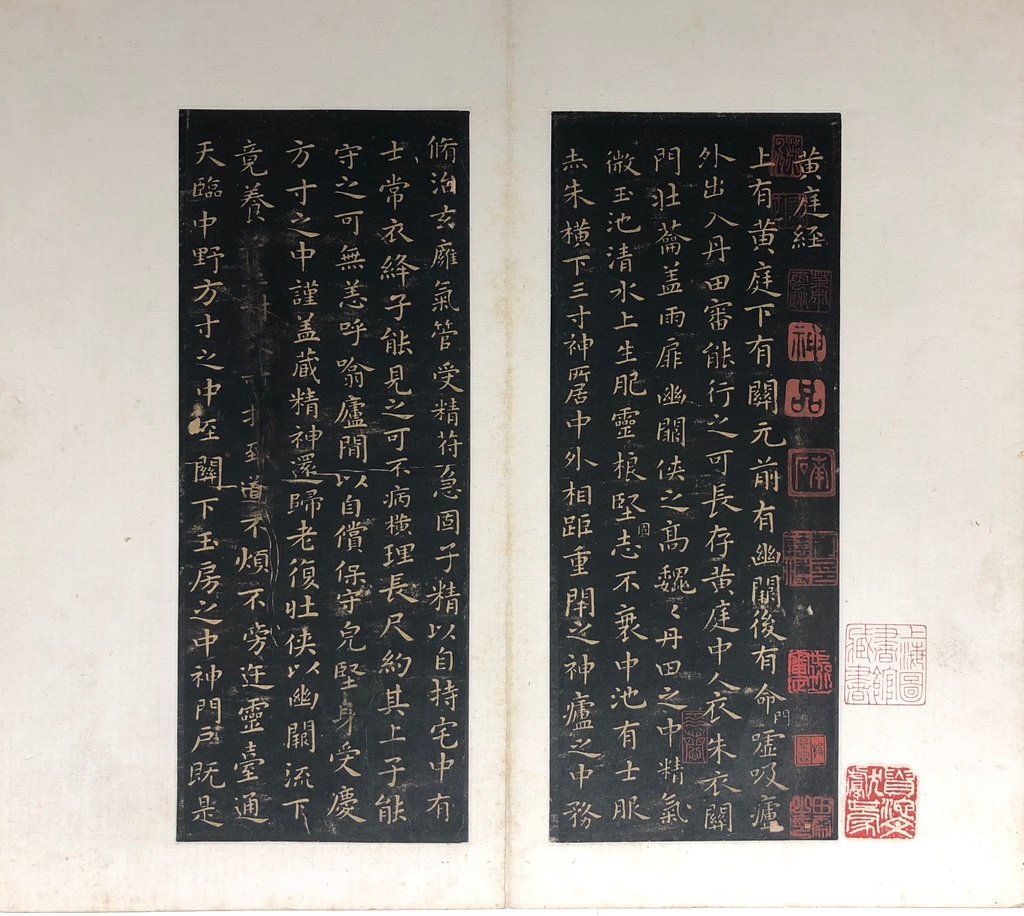 黄庭経
上有黄庭下有關元前有幽闕後有命門噓吸廬
外出入丹田審能行之可長存黄庭中人衣朱衣關
門壮蘥盖兩扉幽闕侠之髙魏〻丹田之中精氣
微玉池清水上生肥靈根堅固志不衰中池有士服
赤朱横下三寸神所居中外相距重閇之神廬之中務
脩治玄廱氣管受精苻急固子精以自持宅中有
士常衣絳子能見之可不病横理長尺約其上子能
守之可無恙呼噏廬閒以自償保守皃堅身受慶
方寸之中謹盖蔵精神還歸老復壮侠以幽闕流下
竟養 至道不煩不旁迕靈臺通
天臨中野方寸之中至關下玉房之中神門戸既是
神品
上海圖書館藏書